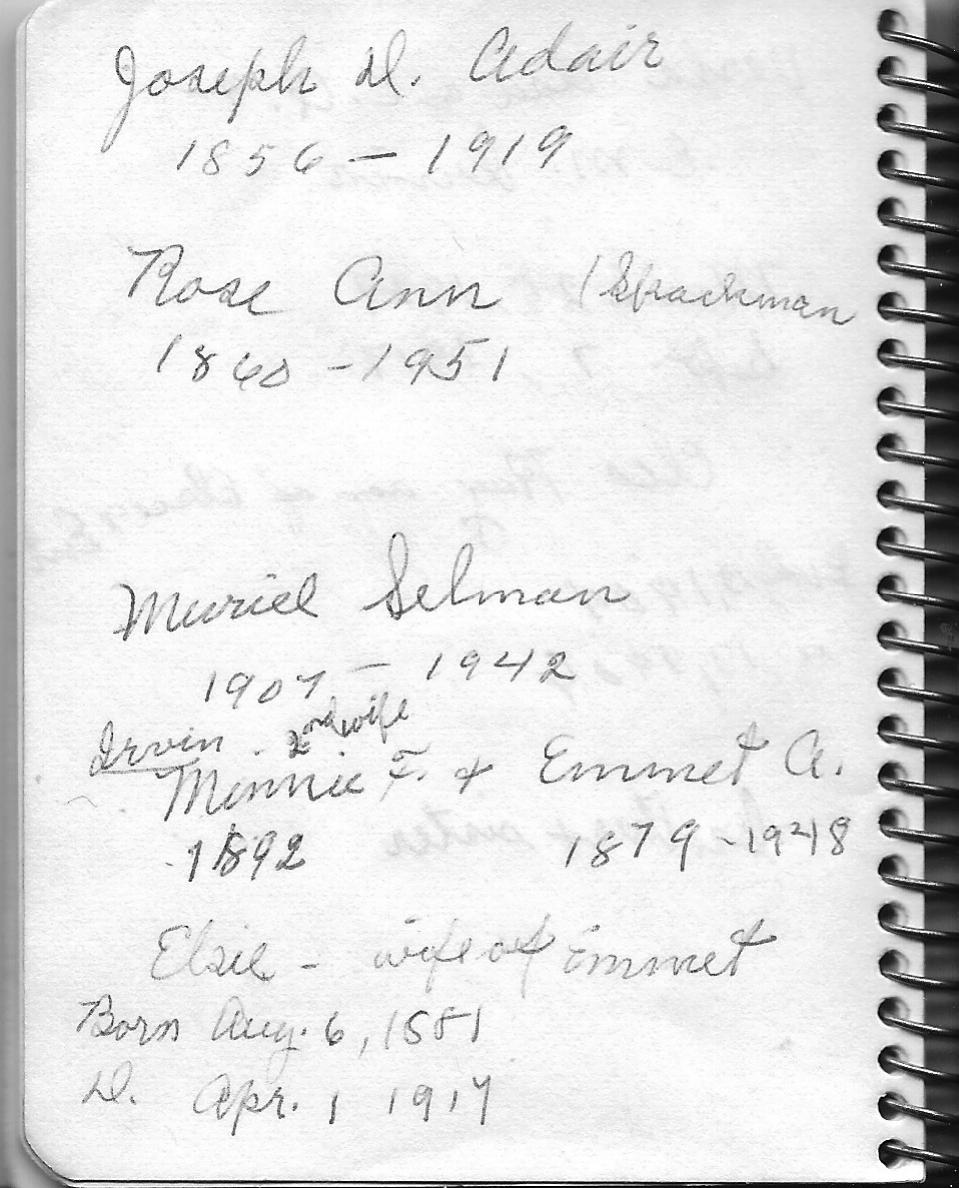 Joseph D. Adair
1856 – 1919
Rose Ann (Sprackman
1860 - 1951
Muriel Selman
1907 – 1942
Irvin - 2nd wife
Minnie F. + Emmet A.
-1892 1879 - 1948
Elsie - wife of Emmet
Born Aug. 6, 1881
D. Apr. 1 1917